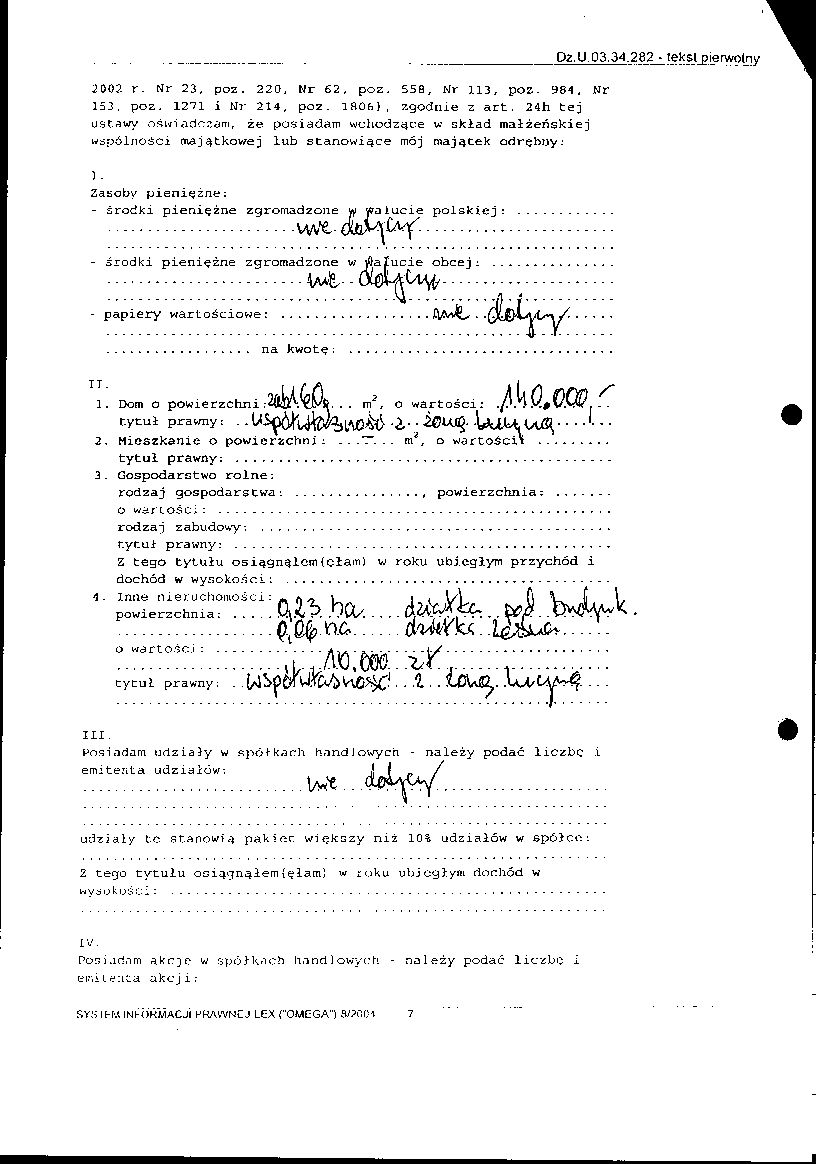 Dz.U.03.34.282 - tekst pierwotny
2002 r. Nr 23, poz. 220, Nr 62, poz. 558, Nr 113, poz. 984, Nr
153, poz. 1271 i Nr 214, poz. 1806), zgodnie z art. 24h tej
ustawy oświadczam, że posiadam wchodzące w skład małżeńskiej
wspólności majątkowej lub stanowiące mój majątek odrębny:
I.
Zasoby pieniężne:
- środki pieniężne zgromadzone w walucie polskiej: ............
nie dotyczy
- środki pieniężne zgromadzone w walucie obcej: ...............
nie dotyczy
- papiery wartościowe: .................. nie dotyczy ......
.................. na kwotę: ................................
II.
1. Dom o powierzchni: 160 ... m², o wartości: 140.000,-
tytuł prawny: .. współwłasność z żoną Lucyną ....
2. Mieszkanie o powierzchni: ...—... m², o wartości .........
tytuł prawny: .............................................
3. Gospodarstwo rolne:
rodzaj gospodarstwa: ..............., powierzchnia: .......
o wartości: ...............................................
rodzaj zabudowy: ..........................................
tytuł prawny: .............................................
Z tego tytułu osiągnąłem(ęłam) w roku ubiegłym przychód i
dochód w wysokości: .......................................
4. Inne nieruchomości:
powierzchnia: ..... 0,23 ha .... działka pod budynk.
0,06 ha ...... działka leśna
o wartości: ............ 10.000 zł
tytuł prawny: .. współwłasność z żoną Lucyną ...
III.
Posiadam udziały w spółkach handlowych - należy podać liczbę i
emitenta udziałów:
nie dotyczy
udziały te stanowią pakiet większy niż 10% udziałów w spółce:
Z tego tytułu osiągnąłem(ęłam) w roku ubiegłym dochód w
wysokości: ....................................................
IV.
Posiadam akcje w spółkach handlowych - należy podać liczbę i
emitenta akcji:
SYSTEM INFORMACJI PRAWNEJ LEX ("OMEGA") 8/2004 7